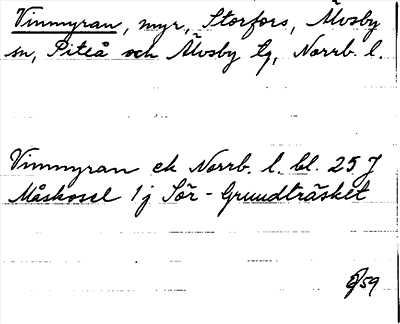 Vinmyran, myr, Storfors, Älvsby
sn, Piteå och Älvsby tg, Norrb. l.
Vinmyran ek Norrb. l. bl. 25 J
Måskosel 1 j Sör-Grundträsket
/59